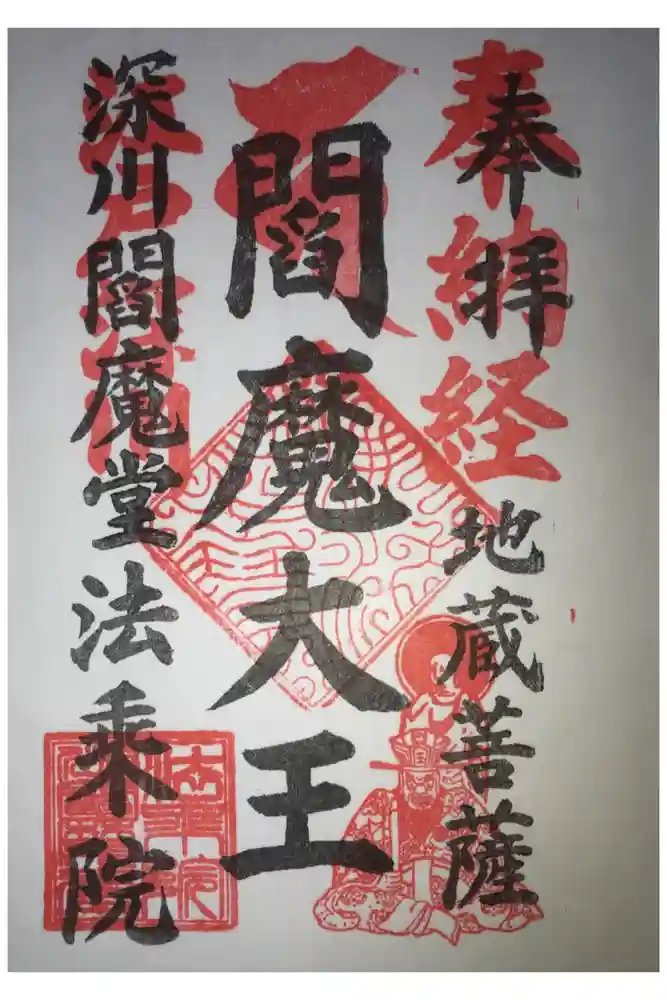 奉拝
奉納経
地蔵菩薩
閻魔大王
深川閻魔堂法乗院
法乗院